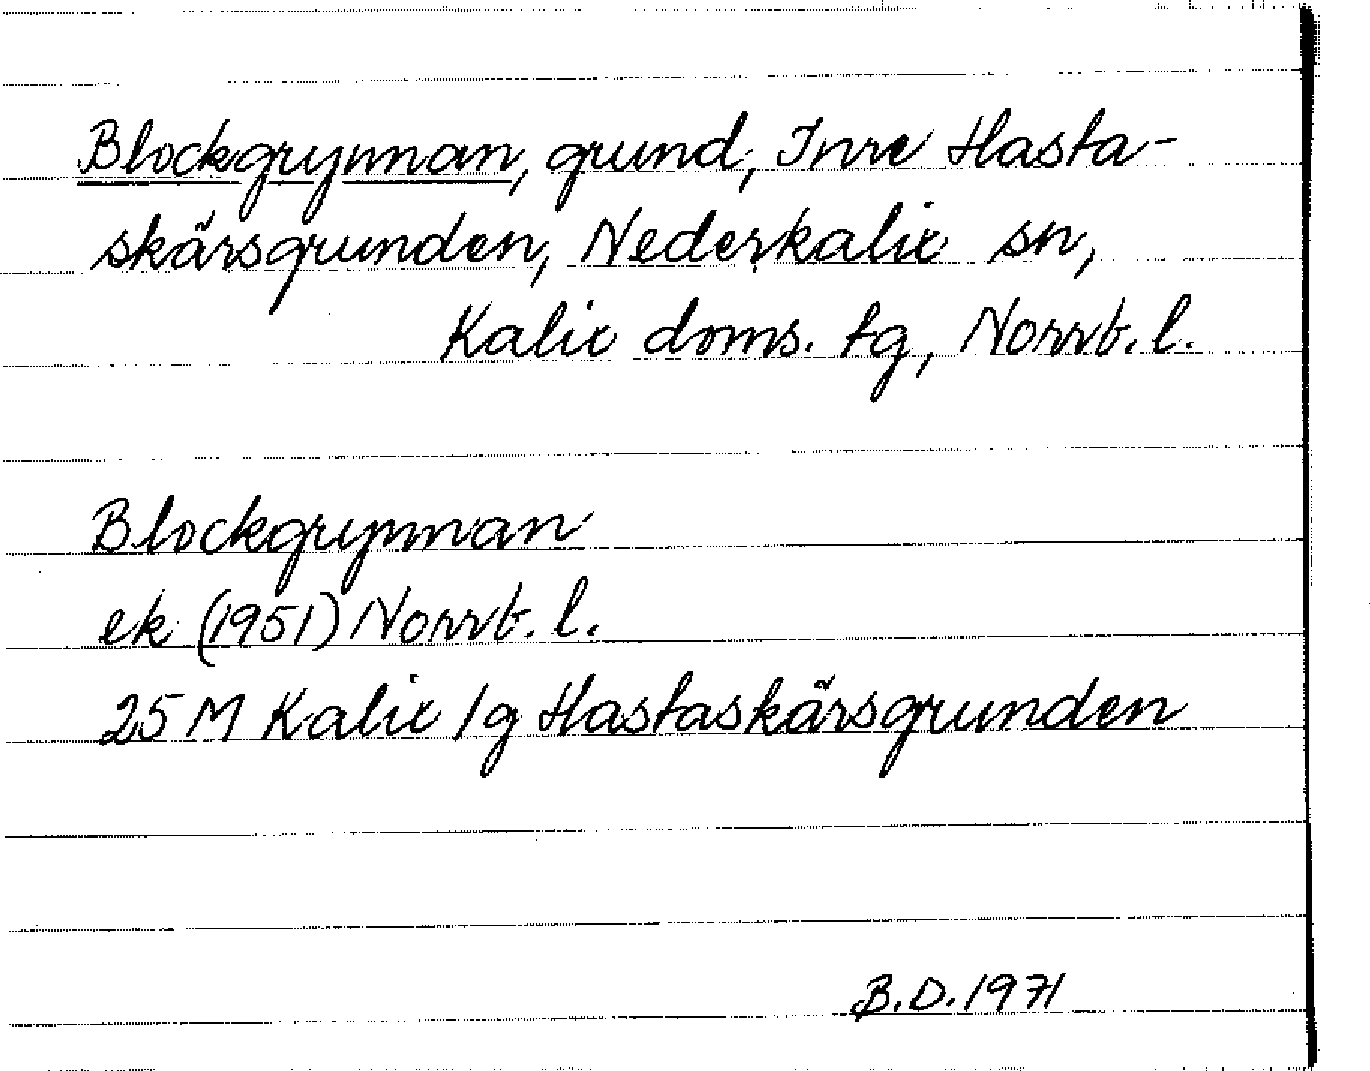 Blockgrynnan, grund, Inre Hasta-
skärsgrunden, Nederkalix sn,
Kalix doms. tg, Norrb. l.
Blockgrynnan
ek (1951) Norrb. l.
25 M Kalix lg Hastaskärsgrunden
B.D. 1971